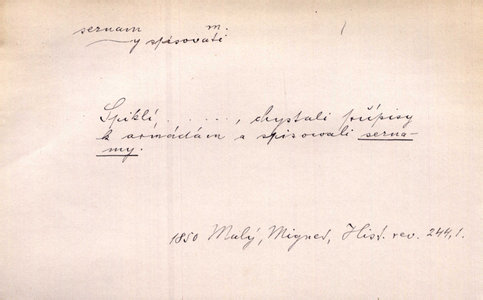 seznam m.
y spisovati
Spiklí . . . . ., chystali přípisy
k armádám a spisowali sezna-
my.
1850 Malý, Mignet, Hist. rev. 244,1.